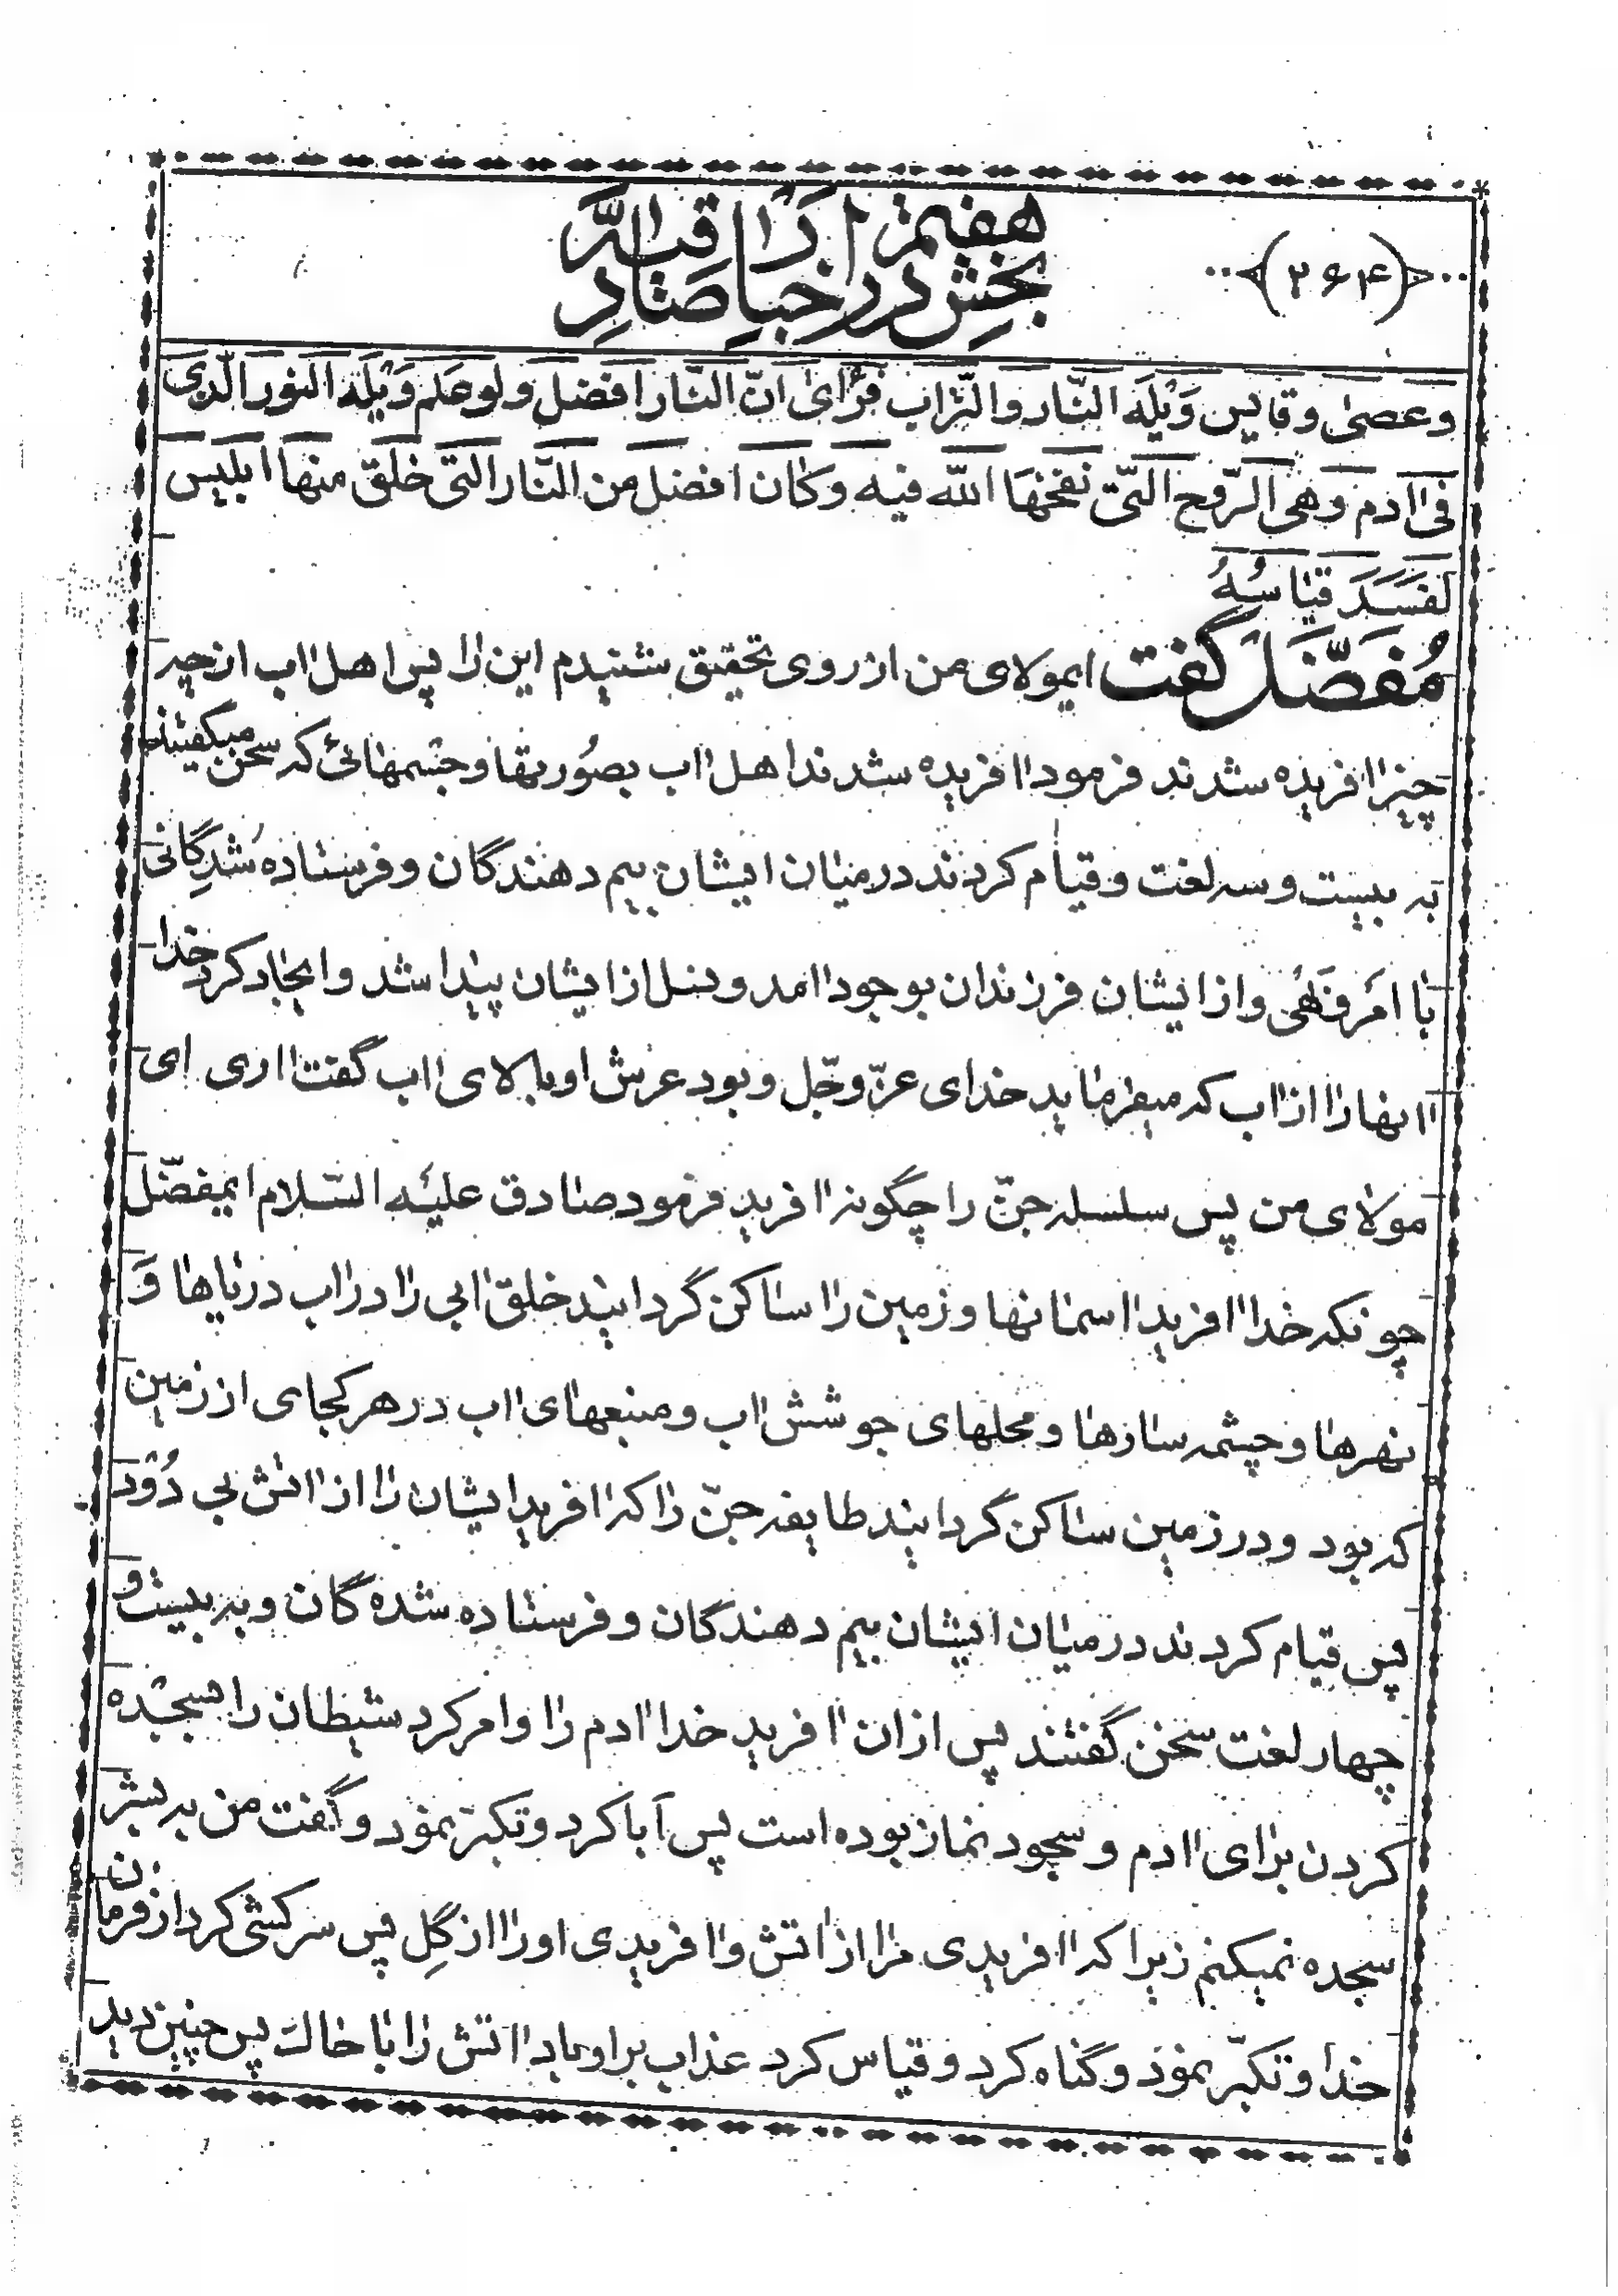 ﴿۲۶۴﴾
بخش هفتم در اخبار صادر
وعصیٰ وقایس وَیْلَهُ النّار والتّراب فَرَاَیٰ انّ النّار افضل ولو علم وَیْلَه النور الّذی
فی اادم وهی الرّوح الّتی نفخها اللّه فیه وکان افضل من النّار الّتی خلق منها ابلیس
لَفَسَدَ قیٰاسُهُ
مُفَضَّلْ گفت ایمولای من از روی تحقیق شنیدم این را پس اهل ااب از چه
چیز اافریده شدند فرمود اافریده شدند اهل ااب بصُورتها و جشمهائی که سخن میگفتند
به بیست و سه لغت و قیام کردند در میان ایشان بیم دهندگان و فرستاده شدِگانی
با امَر وَنَهْی و از ایشان فرزندان بوجود اامد و نسل از ایشان پیدا شد و ایجاد کرد خدا
اانها را از ااب که میفرماید خدای عزّوجّل و بود عرش او بابلای ااب گفت ااری ای
مولای من پس سلسله جنّ را چگونه اافرید فرمود صادق علیْه السّلام ایمفضّل
چونکه خدا اافرید ااسمانها و زمین را ساکن گردانید خلق اابی را در ااب دریاها وَ
نهرها و چشمه سارها و محلهای جوشش ااب و منبعهای ااب در هر کجای از زمین
که بود و در زمین ساکن گردانید طایفه جنّ را که اافرید ایشان را از ااتش بی دُوْد
پس قیام کردند در میان ایشان بیم دهندگان و فرستاده شده گان و به بیست و
چهار لغت سخن گفتند پس از ان اافرید خدا اادم را و امر کرد شیطان را بسجده
کردن برای اادم و سجود نماز بوده است پس اَبا کرد و تکبّر نمود و گفت من به بشر
سجده نمیکنم زیرا که اافریدی مرا از ااتش و اافریدی او را از گِل پس سرکشی کرد از فرمان
خدا و تکبّر نمود و گناه کرد و قیاس کرد عذاب بر او باد ااتش را با خاک پس چنین دید